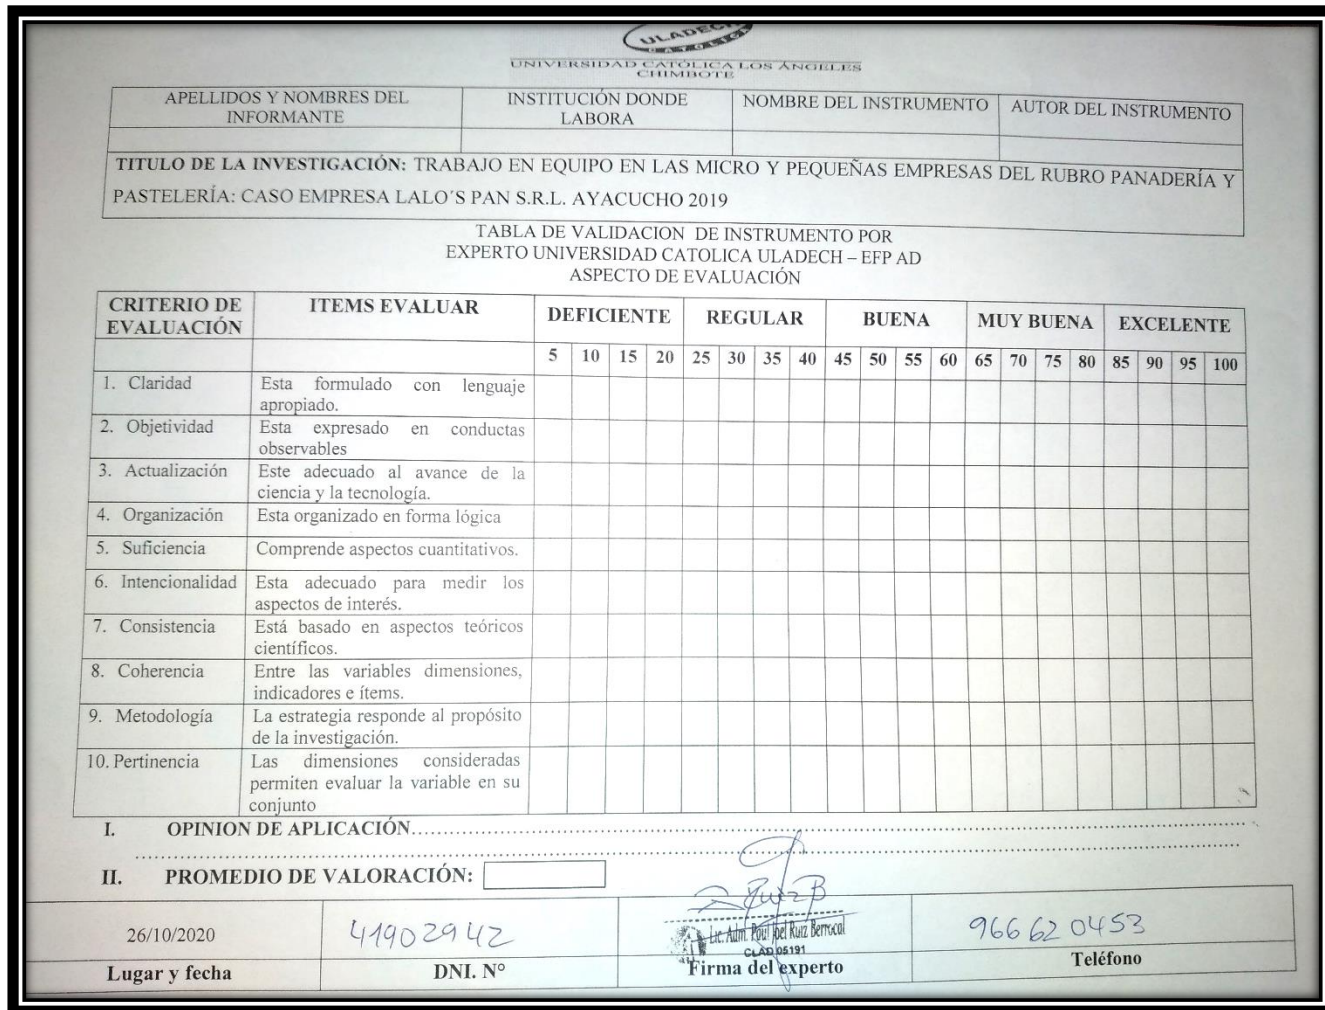 ULADECH
CATOLICA
UNIVERSIDAD CATÓLICA LOS ÁNGELES
CHIMBOTE
APELLIDOS Y NOMBRES DEL INFORMANTE INSTITUCIÓN DONDE LABORA NOMBRE DEL INSTRUMENTO AUTOR DEL INSTRUMENTO
TITULO DE LA INVESTIGACIÓN: TRABAJO EN EQUIPO EN LAS MICRO Y PEQUEÑAS EMPRESAS DEL RUBRO PANADERÍA Y
PASTELERÍA: CASO EMPRESA LALO´S PAN S.R.L. AYACUCHO 2019
TABLA DE VALIDACION DE INSTRUMENTO POR
EXPERTO UNIVERSIDAD CATOLICA ULADECH – EFP AD
ASPECTO DE EVALUACIÓN
CRITERIO DE EVALUACIÓN ITEMS EVALUAR DEFICIENTE REGULAR BUENA MUY BUENA EXCELENTE
5 10 15 20 25 30 35 40 45 50 55 60 65 70 75 80 85 90 95 100
1. Claridad Esta formulado con lenguaje
apropiado.
2. Objetividad Esta expresado en conductas
observables
3. Actualización Este adecuado al avance de la
ciencia y la tecnología.
4. Organización Esta organizado en forma lógica
5. Suficiencia Comprende aspectos cuantitativos.
6. Intencionalidad Esta adecuado para medir los
aspectos de interés.
7. Consistencia Está basado en aspectos teóricos
científicos.
8. Coherencia Entre las variables dimensiones,
indicadores e ítems.
9. Metodología La estrategia responde al propósito
de la investigación.
10. Pertinencia Las dimensiones consideradas
permiten evaluar la variable en su
conjunto
I. OPINION DE APLICACIÓN
II. PROMEDIO DE VALORACIÓN:
Ruiz B
26/10/2020 41902942 Lic. Adm. Poul Joel Ruiz Berrocal 966620453
CLAD 05191
Lugar y fecha DNI. N° Firma del experto Teléfono